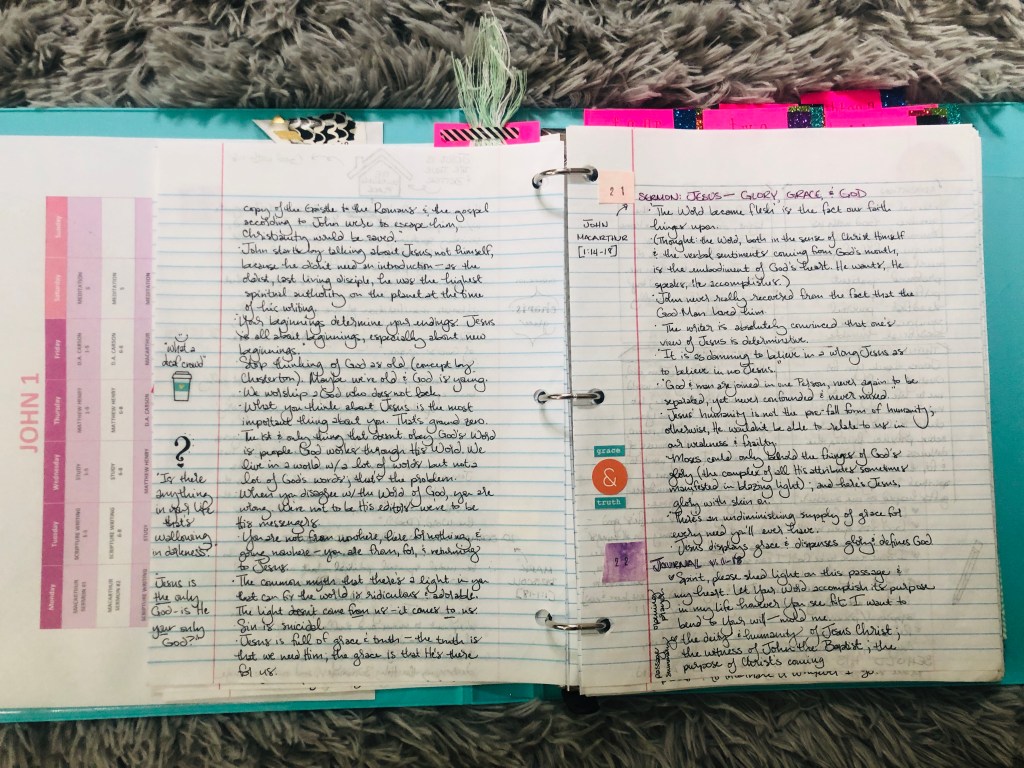 JOHN 1
Sunday
Saturday
MEDITATION
MEDITATION
MEDITATION
Friday
D.A. CARSON
D.A. CARSON
MACARTHUR
Thursday
MATTHEW HENRY
MATTHEW HENRY
D.A. CARSON
Wednesday
STUDY
STUDY
MATTHEW HENRY
Tuesday
SCRIPTURE WRITING
SCRIPTURE WRITING
STUDY
Monday
MACARTHUR
SERMON #1
MACARTHUR
SERMON #2
SCRIPTURE WRITING
"What a
deaf crowd"
?
"Is there
anything
in your life
that's
wallowing
in darkness?
"Jesus is
the only
God - is He
your only
God?"
copy of the Epistle to the Romans & the gospel
according to John were to escape him,
Christianity would be saved."
• John starts by talking about Jesus, not himself,
because he didn't need an introduction - as the
oldest, last living disciple, he was the highest
spiritual authority on the planet at the time
of his writing.
• Your beginnings determine your endings. Jesus
is all about beginnings, especially about new
beginnings.
• Stop thinking of God as old (concept by
Chesterton). Maybe we're old & God is young.
• We worship a God who does not
• What you think about Jesus is the most
important thing about you. That's ground zero.
• The 1st & only thing that doesn't obey God's Word
is people. God works through His Word. We
live in a world w/ a lot of words but not a
lot of God's words; that's the problem.
• When you disagree w/ the Word of God, you are
wrong. We're not to be His editors - we're to be
His messengers.
• You are not from nowhere, here for nothing, &
going nowhere - you are from, for, & returning
to Jesus.
• The common myth that there's a light in you
that can fix the world is ridiculous & adorable.
The light doesn't come from us - it comes to us.
• Sin is suicidal.
• Jesus is full of grace & truth - the truth is
that we need Him, the grace is that He's there
for us.
21
SERMON: JESUS - GLORY, GRACE, & GOD
JOHN
MACARTHUR
[1:14-18]
• "The Word became flesh" is the fact our faith
hinges upon.
(Thought: the Word, both in the sense of Christ Himself
& the verbal sentiments coming from God's mouth,
is the embodiment of God's heart. He wants, He
speaks, He accomplishes.)
• John never really recovered from the fact that the
God Man loved him.
• The writer is absolutely convinced that one's
view of Jesus is determinative.
• "It is as damning to believe in a wrong Jesus as
to believe in no Jesus."
• "God & man are joined in one Person, never again to be
separated, yet never confounded & never mixed."
• Jesus' humanity is not the pre-fall form of humanity;
otherwise, He wouldn't be able to relate to us in
our weakness & frailty.
• Moses could only behold the fringes of God's
glory (the couplet of all His attributes sometimes
manifested in blazing light); and here's Jesus,
glory with skin on.
grace
&
truth
• There's an undiminishing supply of grace for
every need you'll ever have.
• Jesus displays grace & dispenses glory & defines God
22
JOURNENAL VS. 1-18
opening
prayer
Spirit, please shed light on this passage &
my heart. Let Your Word accomplish its purpose
in my life however You see fit. I want to
bend to Your will - mold me.
passage
summary
the deity & humanity of Jesus Christ;
the witness of John the Baptist; the
purpose of Christ's coming